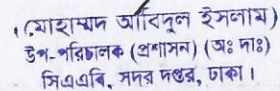 (মোহাম্মদ আরিফুল ইসলাম)
উপ-পরিচালক (প্রশাসন) (অঃ দাঃ)
সিএএবি, সদর দপ্তর, ঢাকা।